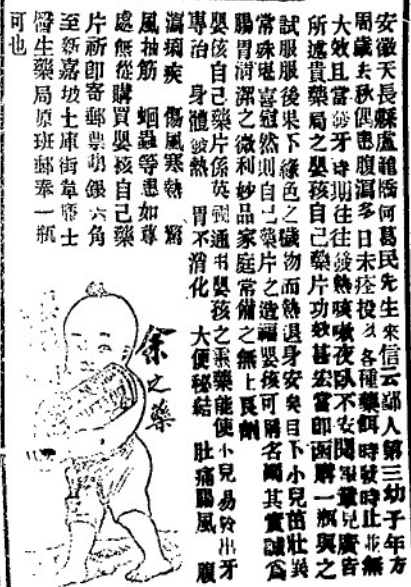 安徽天長縣盧龍橋何葛民先生來信云鄙人第三幼子年方
周歲去秋偶患腹瀉多日未痊投以各種藥餌時發時止並無
大效且當發牙時期往往發熱咳嗽夜臥不安閱報載兒廣告
所述貴藥局之嬰孩自己藥片功效甚宏當即函購一瓶與之
試服服後果下綠色之穢物而熱退身安矣目下小兒茁壯異
常殊堪喜慰然則自己藥片之造福嬰孩可謂名副其實誠為
腸胃清潔之微利妙品家庭常備之無上良劑
嬰孩自己藥片係英國通用嬰孩之藥能使小兒易於出牙
專治 身體發熱 胃不消化 大便秘結 肚痛腸風 腹
瀉痢疾 傷風寒熱 驚
風抽筋 蛔蟲等患如尊
處無從購買嬰孩自己藥
片祈即寄郵票銀六角
至新嘉坡士庫街韋廉士
醫生藥局原班郵奉一瓶
可也
余之藥